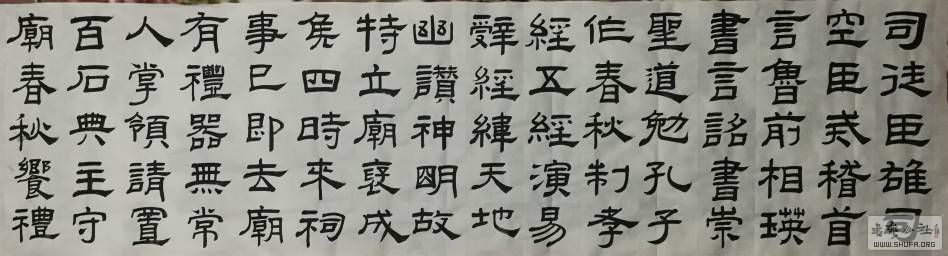 司徒臣雄司
空臣戒稽首
言魯前相瑛
書言詔書崇
聖道勉孔子
作春秋制孝
經五經演易
辭經緯天地
幽讚神明故
特立廟褒成
侯四時來祠
事已即去廟
有禮器無常
人掌領請置
百石典主守
廟春秋饗禮
书法公社
WWW.SHUFA.ORG